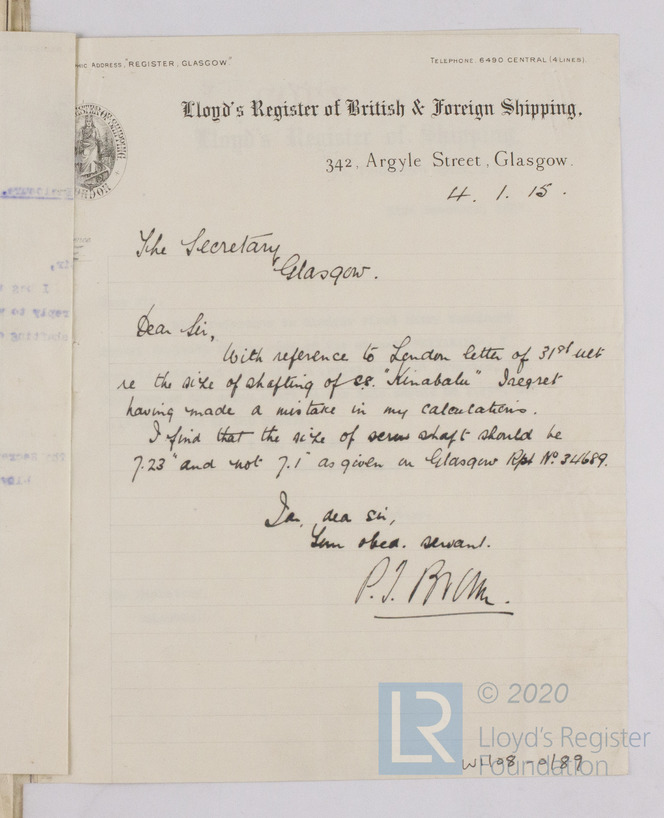 HIC ADDRESS, "REGISTER, GLASGOW."
TELEPHONE: 6490 CENTRAL (4 LINES).
Lloyd's Register of British & Foreign Shipping.
342, Argyle Street, Glasgow.
4. 1. 15.
The Secretary
Glasgow.
Dear Sir,
With reference to London letter of 31st ult
re the size of shafting of ss. "Kinabalu" I regret
having made a mistake in my calculations.
I find that the size of screw shaft should be
7.23" and not 7.1" as given on Glasgow Rpt No. 34689.
I am, dear sir,
Your obed. servant.
P. J. Brown.
LR
© 2020
Lloyd's Register
Foundation
W1108-0189